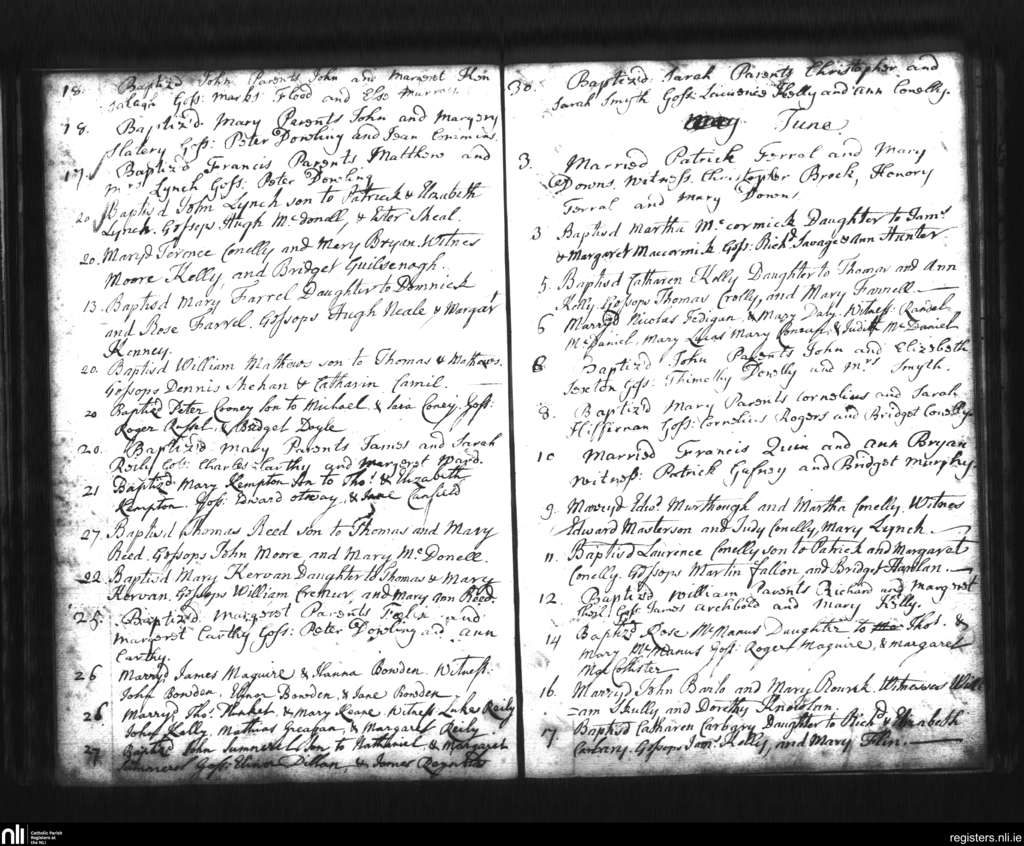 18. Baptiz'd John Parents John and Margeret Hin
salagh Goss: Marks Flood and Else Murray
18. Baptiz'd Mary Parents John and Margery
Slatery Goss: Peter Dowling and Jean Commins
17. Baptiz'd Francis Parents Matthew and
Mrs Lynch Goss: Peter Dowling
20 Baptisd John Lynch son to Patrick & Elizabeth
Lynch. Gossops Hugh McDonell, & Ester Sheal.
20. Maryd Terence Conelly and Mery Bryan Witnes
Moore Kelly, and Bridget Guilsenagh.
13. Baptisd Mary Farrel Daughter to Domnick
and Rose Farrel. Gossops Hugh Neale & Margart
Kenney.
20. Baptisd William Mathews son to Thomas & Mathews.
Gossops Dennis Shehan & Catharin Carril.
20 Baptiz'd Peter Croney Son to Michael, & Coney. Goss:
Roger & Bridget Doyle
20. Baptiz'd Mary Parents James and Sarah
Reily Charles Carthy and Margeret Ward.
21 Baptizd Mary Kempton Son to Thos. & Elizabeth
Kempton. Goss: Edward otway, & Jane Canfield
27. Baptisd Thomas Reed son to Thomas and Mary
Reed. Gossops John Moore and Mary McDonell.
22. Baptisd Mary Kervan Daughter to Thomas & Mary
Kervan. Gossops William and Mary ann Reed.
25. Baptiz'd Margeret Parents and
Margeret Carthy Goss: Peter Dowling and ann
Carthy.
26 Marryd James Maguire & Hanna Bowden. Witness:
John Bowden, Elinor Bowden, & Jane Bowden
26 Marryd Thos. Plunket, & Mary Keane, Witness Luke Reily
John Kelly, Mathias Greapan, & Margaret Reily.
27 Baptizd John Sumnerel Son to Nathaniel, & Margaret
Sumnerel Goss: Elinor Dillon, & James Reynolds
30. Baptiz'd Sarah Parents Christopher and
Sarah Smyth Goss: Laurence Kelly and ann Conelly.
June
3. Married Patrick Ferral and Mary
Downs. Witness. Christopher Brock, Henory
Ferral and Mary Downs
3 Baptisd Martha McCormick Daughter to Jams
& Margaret Maccormick Goss: Richd. Savage & Ann Hunter.
5. Baptisd Catharen Kelly Daughter to Thomas and Ann
Kelly Gossops Thomas Crolly, and Mary Farnell.
6 Marryd Nicolas Fedigan, & Mary Daly. Witness: Randel
McDaniel, Mary Lucas Mary & Judith McDaniel
8 Baptiz'd John Parents John and Elizebeth
Sexton Goss: Thimothy Dowlly and Mrs Smyth.
8. Baptiz'd Mary Parents Cornelius and Sarah
Hiffernan Goss: Cornelius Rogers and Bridget Conelly
10 Married Francis Quin and ann Bryan
witness: Patrick Gafney and Bridget Murphy.
9. Marryd Edwd Murthough and Martha Conelly. Witnes
Edward Masterson and Judy Conelly, Mary Lynch.
11. Baptisd Laurence Conelly son to Patrick and Margaret
Conelly. Gossops Martin Fallon and Bridget Hanlan.
12. Baptiz'd William Parents Richard and Margret
Goss: James archbold and Mary Kelly.
14 Baptizd Rose McManus Daughter to Thos. &
Mary McManus Goss: Roger Maguire, & Margaret
McCollister
16. Marryd John Barlo and Mary Rourk. Witneses Will
=am Skully and Dorothy Knowlan.
17 Baptisd Catharen Carbary Daughter to Richd & Elizabeth
Carbary. Gossops Jams Kelly, and Mary Flin.
nli
Catholic Parish
Registers at
the NLI
registers.nli.ie